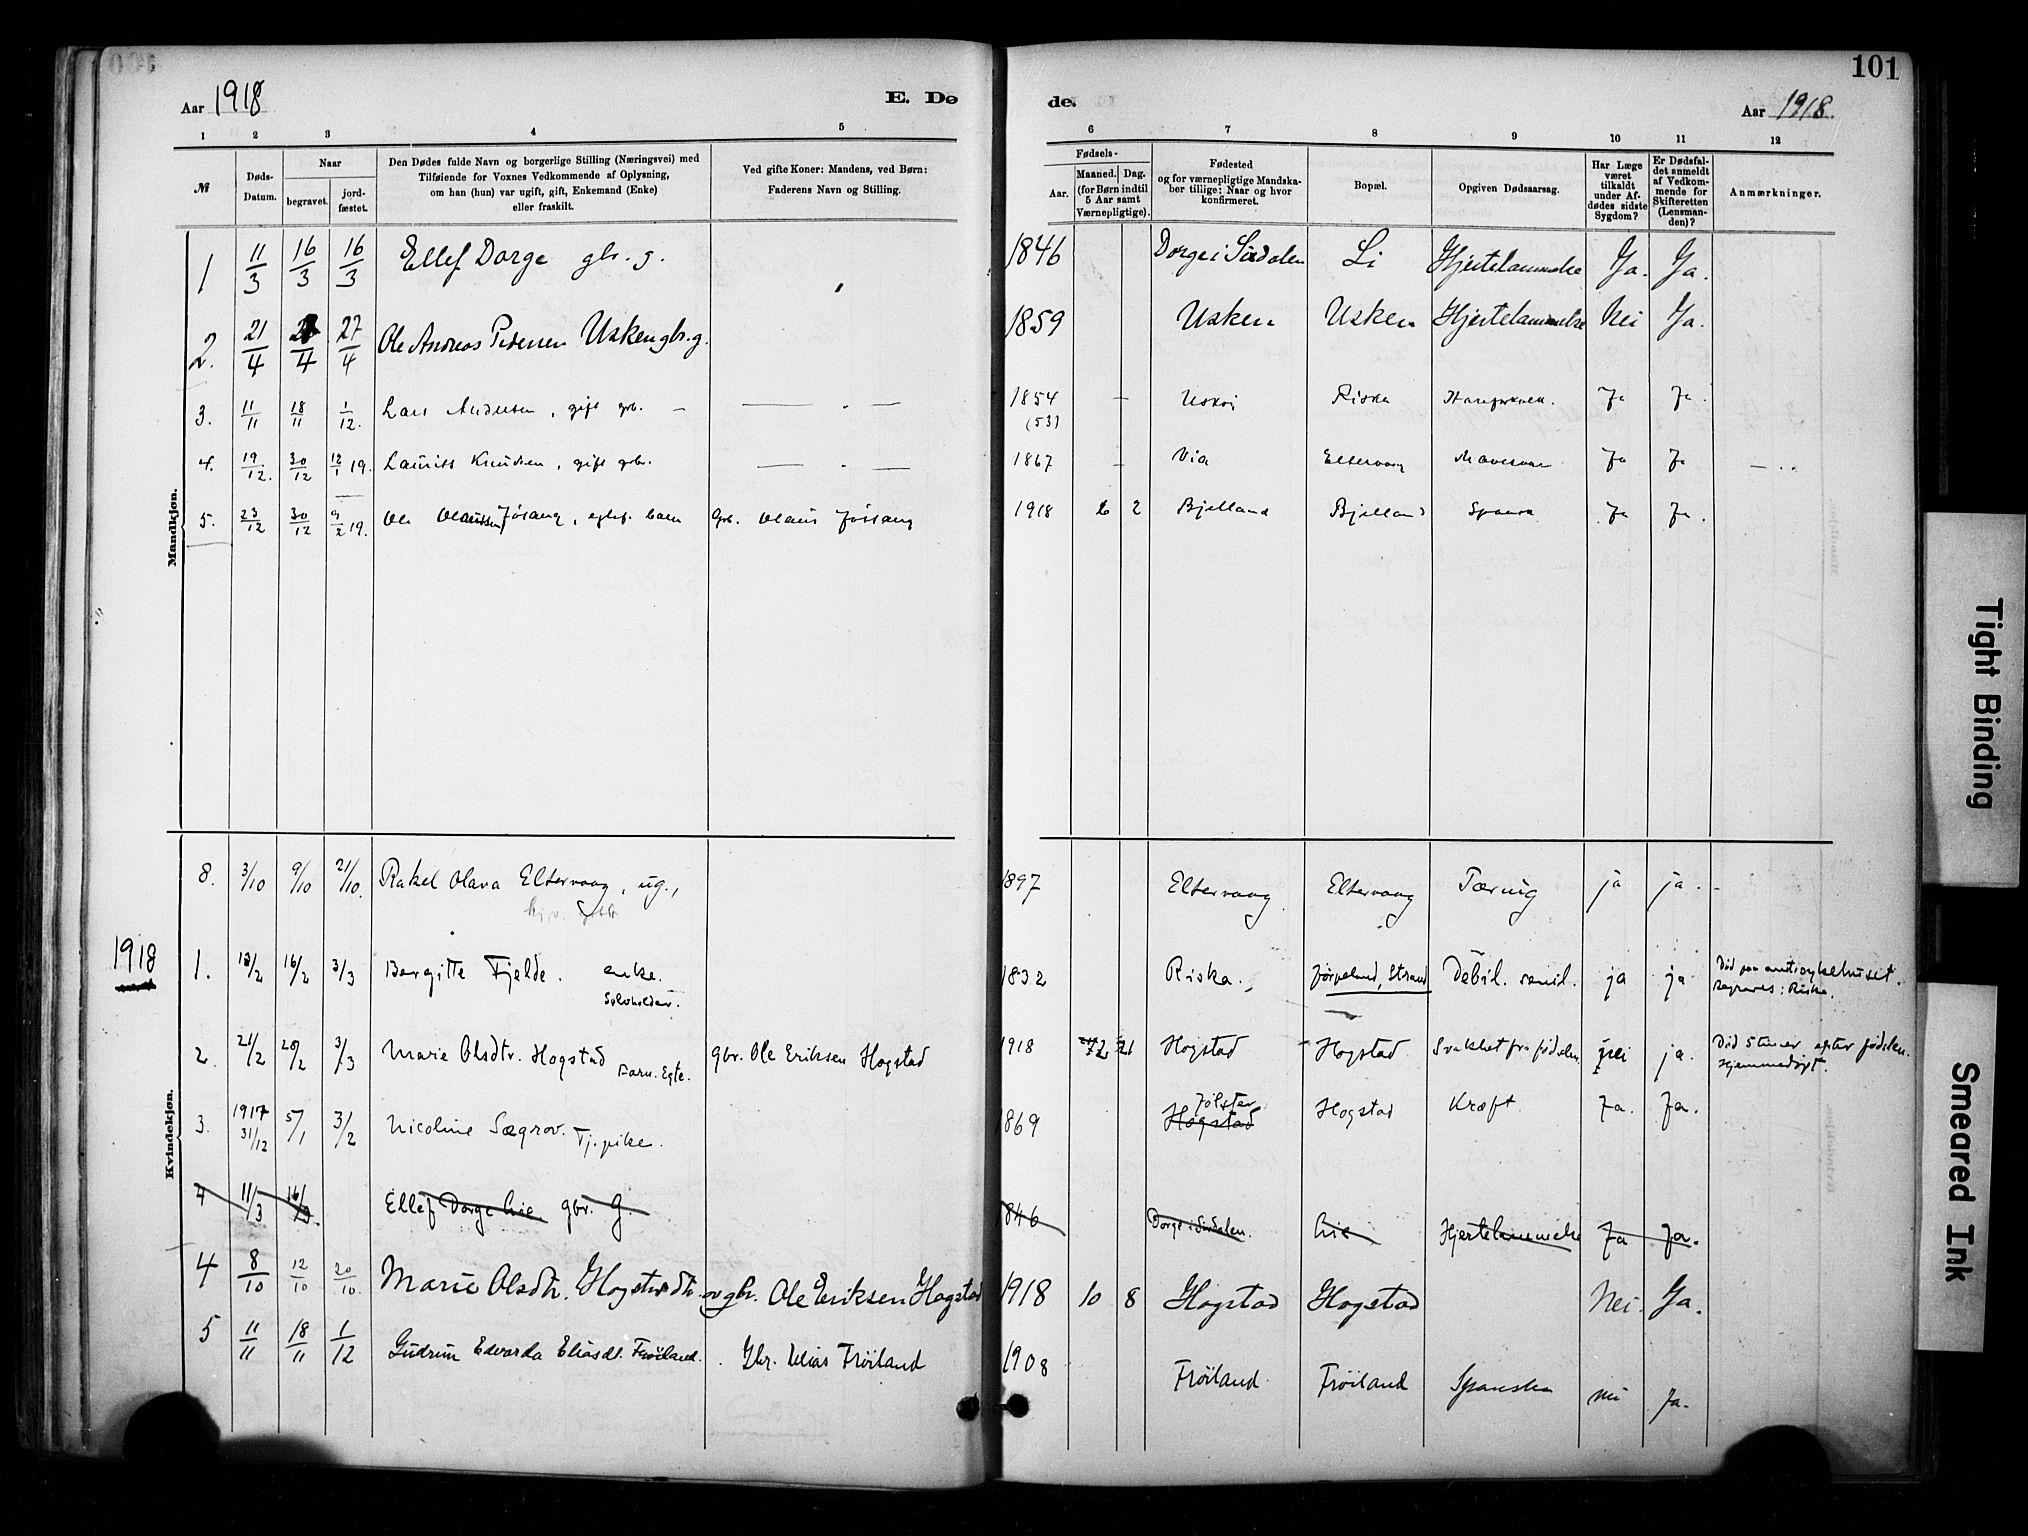 101
Aar 1918
E. Dø
de.
Aar 1918
1 2 3 4 5 6 7 8 9 10 11 12
№
Døds-
Datum.
Naar
begravet.
jord-
fæstet.
Den Dødes fulde Navn og borgerlige Stilling (Næringsvei) med
Tilføiende for Voxnes Vedkommende af Oplysning,
om han (hun) var ugift, gift, Enkemand (Enke)
eller fraskilt.
Ved gifte Koner: Mandens, ved Børn:
Faderens Navn og Stilling.
Fødsels-
Aar.
Maaned. Dag.
(for Børn indtil
5 Aar samt
Værnepligtige).
Fødested
og for værnepligtige Mandska-
ber tillige: Naar og hvor
konfirmeret.
Bopæl.
Opgiven Dødsaarsag.
Har Læge
været
tilkaldt
under Af-
dødes sidste
Sygdom?
Er Dødsfal-
det anmeldt
af Vedkom-
mende for
Skifteretten
(Lensman-
den)?
Anmærkninger.
Mandkjøn.
1 11/3 16/3 16/3 Ellef Dorge gbr. g. 1846 Dorge i Sirdalen Li Hjertelammelse Ja. Ja.
2. 21/4 27/4 27/4 Ole Andreas Pedersen Usken gbr. g. 1859 Usken Usken Hjertelammelse Nei Ja.
3. 11/11 18/11 1/12. Lars Andersen, gift grb. — 1854 — Riska Ja Ja.
(53)
4. 19/12. 30/12 12/1 19. Laurits Knudsen, gift grb. 1867 — Via Eltervaag Ja Ja
5. 23/12 30/12 9/2 19. Ole Olaussen Jøsang, egtef. barn Grb. Olaus Jøssang 1918 6 2 Bjelland Bjelland Spansk Ja Ja.
Kvindekjøn.
8. 3/10 9/10 21/10. Rakel Olava Eltervaag, ug., 1897 Eltervaag Eltervaag Tæring ja ja.
1918
1. 13/2 16/2 3/3 Bergitte Fjelde. enke. 1832 Riska. Jørpeland, Strand Debil. senil. ja ja Død paa sykehuset.
Selvholden. Begraves i Riska.
2. 21/2 28/2 3/3 Marie Olsdtr. Hogstad Barn. Egte. gbr. Ole Eriksen Hogstad 1918 2 21 Hogstad Hogstad Svakhet fra fødselen nei ja. Død 5 timer efter fødslen.
Hjemmedøpt.
3. 1917 31/12 5/1 3/2 Nicoline Sægrov. Tj. pike. 1869 Jølster Hogstad Kræft Ja. Ja.
Hogstad
4 11/3 16/3. Ellef Dorge Lie gbr. G. 1846 Dorge i Sirdalen. Lie Hjertelammelse Ja Ja.
4 8/10 12/10 20/10. Marie Olsdtr. Hogstad gbr. Ole Eriksen Hogstad 1918 10 8 Hogstad Hogstad Nei. Ja.
5 11/11 18/11 1/12 Gudrun Edvarda Eliasdt. Frøiland. Gbr. Elias Frøiland 1908 Frøiland Frøiland Spansken nei Ja.
Tight Binding
Smeared Ink